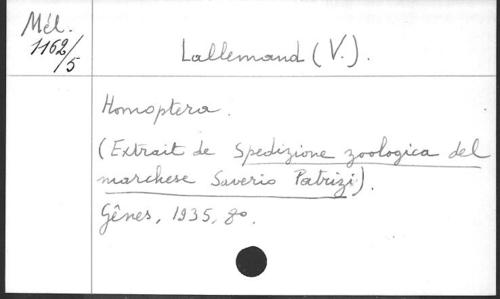 Mél.
1162/5
Lallemand (V.).
Homoptera.
(Extrait de Spedizione zoologica del
marchese Saverio Patrizi).
Gênes, 1935, 8º.